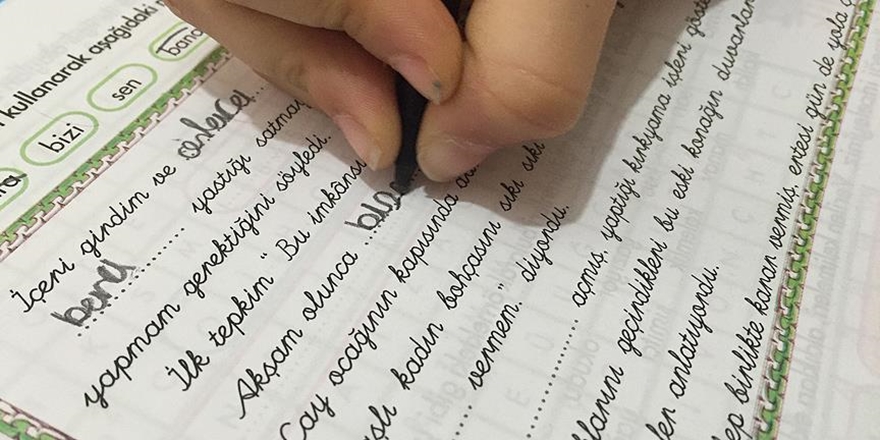 kullanarak aşağıdaki
bizi
sen
bana
İçeri girdim ve
bana yastığı satmam
yapmam gerektiğini söyledi.
İlk tepkim " Bu imkânsı
Akşam olunca
Çay ocağının kapısında
kadın bohçasını sıkı sıkı
vermem." diyordu.
açmış, yaptığı kırkyama işleri göst
geçindikleri bu eski konağın duvarları
anlatıyordu.
birlikte karar vermiş, ertesi gün de yola